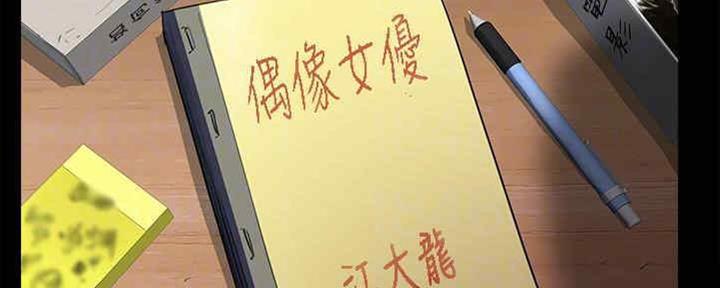 偶像女優
江大龍